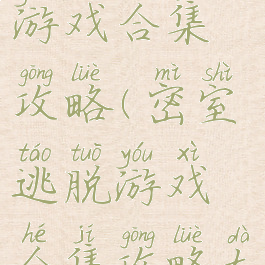 游戏合集
gōng lüè mì shì
攻略(密室
táo tuō yóu xì
逃脱游戏
hé jí gōng lüè dà
合集攻略大